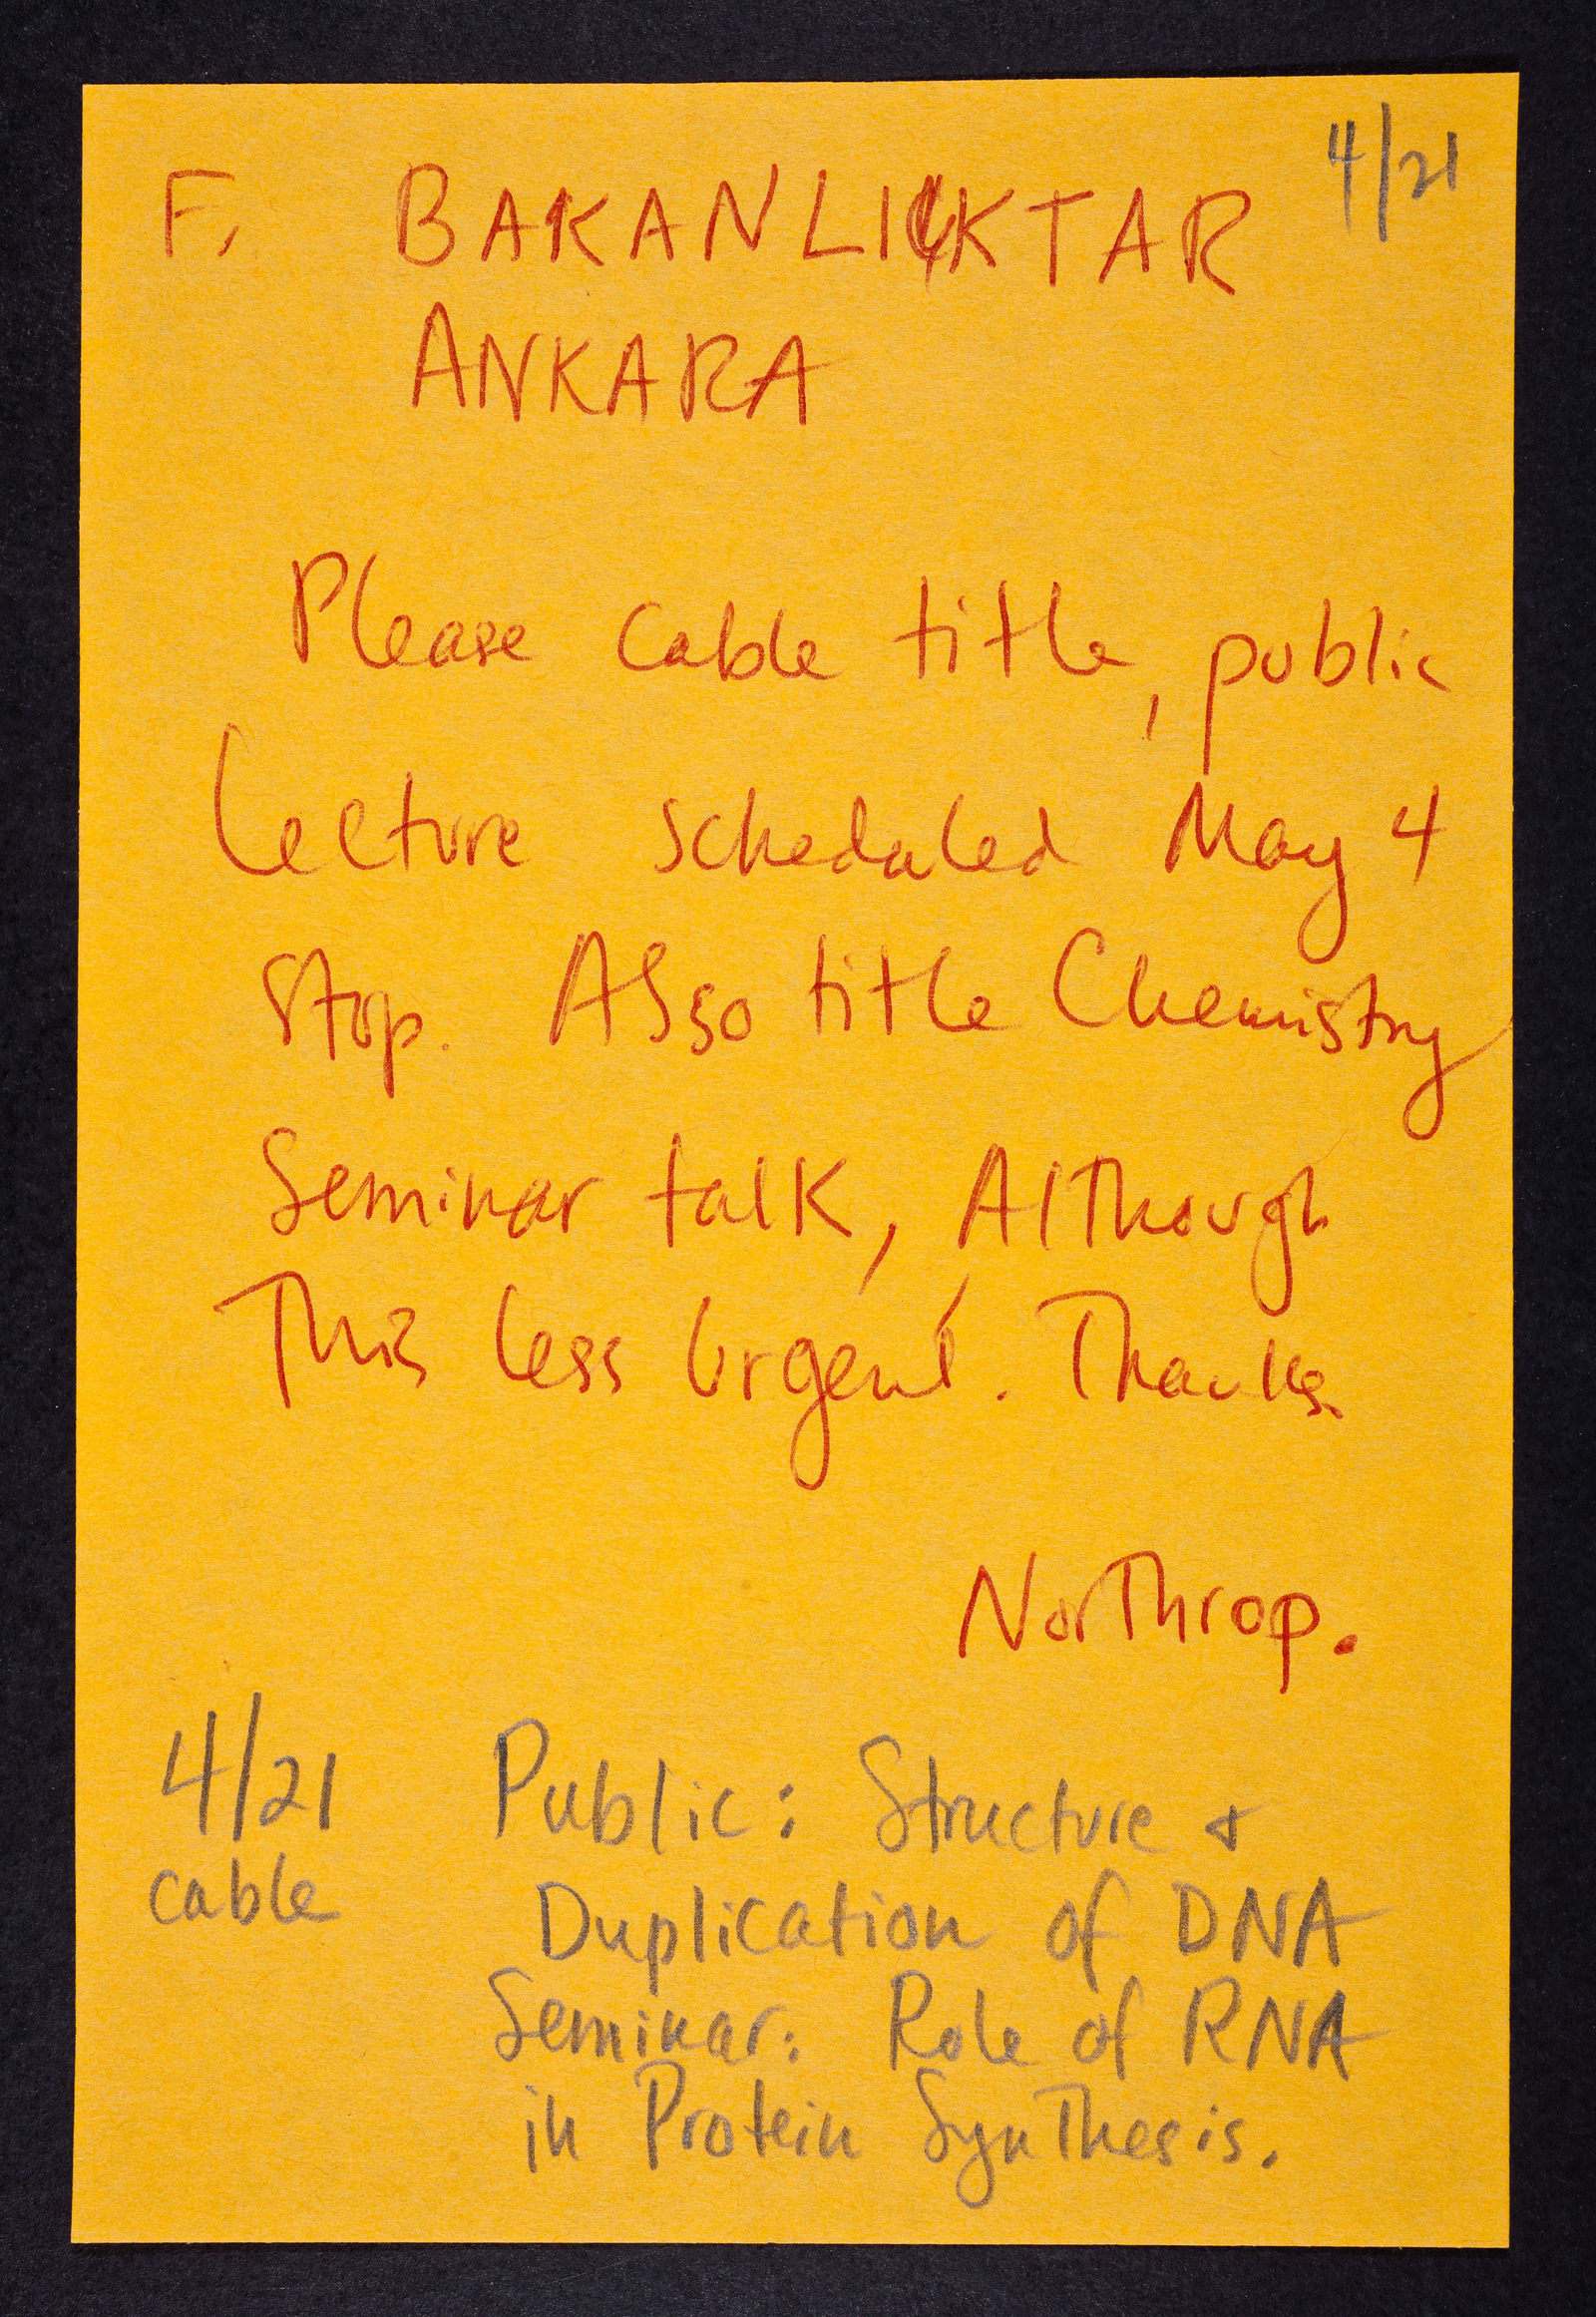 4/21
F. BAKANLIKTAR
ANKARA
Please cable title, public
Lecture scheduled May 4
Stop. Also title Chemistry
Seminar talk, Although
This less Urgent. Thanks.
Northrop.
4/21 Public: Structure &
cable Duplication of DNA
Seminar: Role of RNA
in Protein Synthesis.